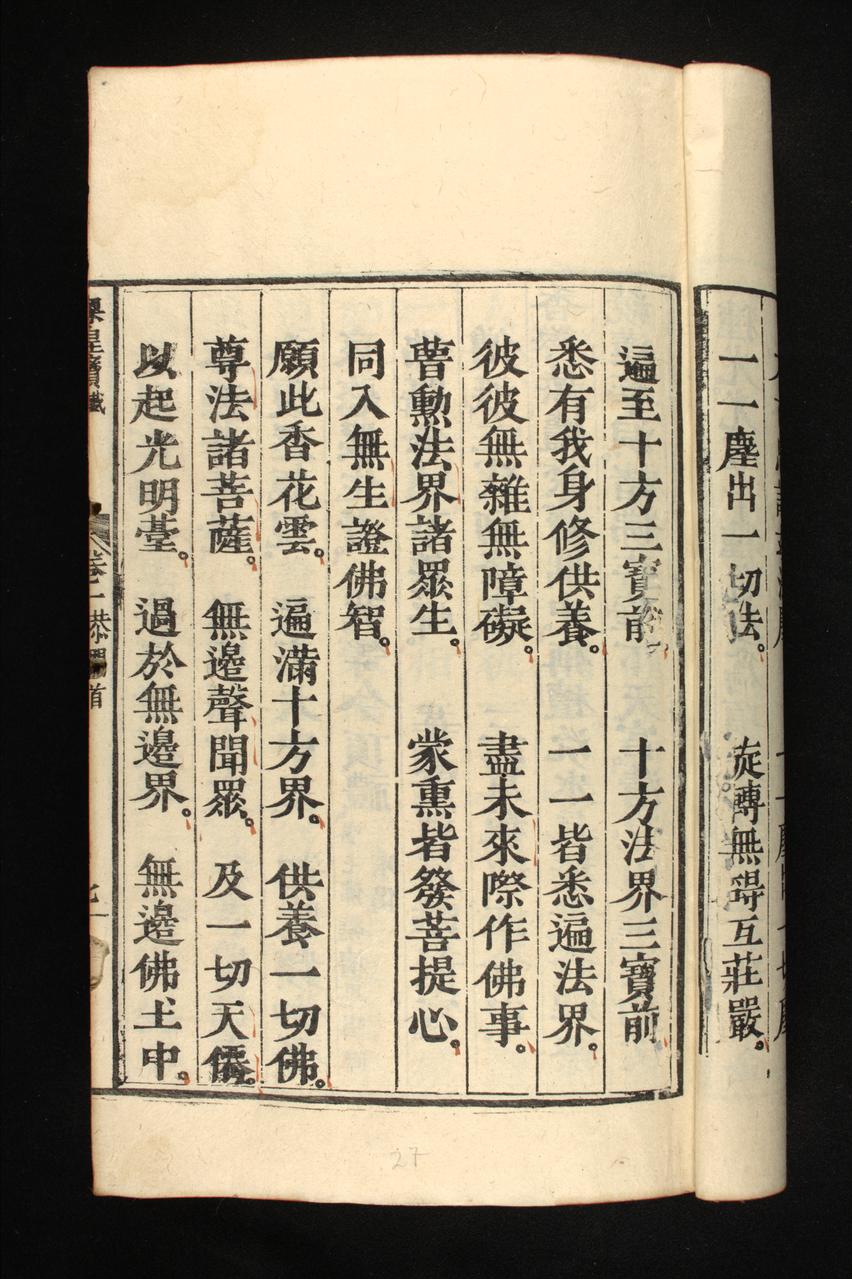 一一塵出一切法。 旋轉無碍互莊嚴。
遍至十方三寶前 十方法界三寶前
悉有我身修供養。 一一皆悉遍法界。
彼彼無雜無障礙。 盡未來際作佛事。
普熏法界諸眾生。 蒙熏皆發菩提心。
同入無生證佛智。
願此香花雲。 遍滿十方界。 供養一切佛。
尊法諸菩薩。 無邊聲聞眾。 及一切天僊。
以起光明臺。 過於無邊界。 無邊佛土中。
皇寶懺 卷一 首
27